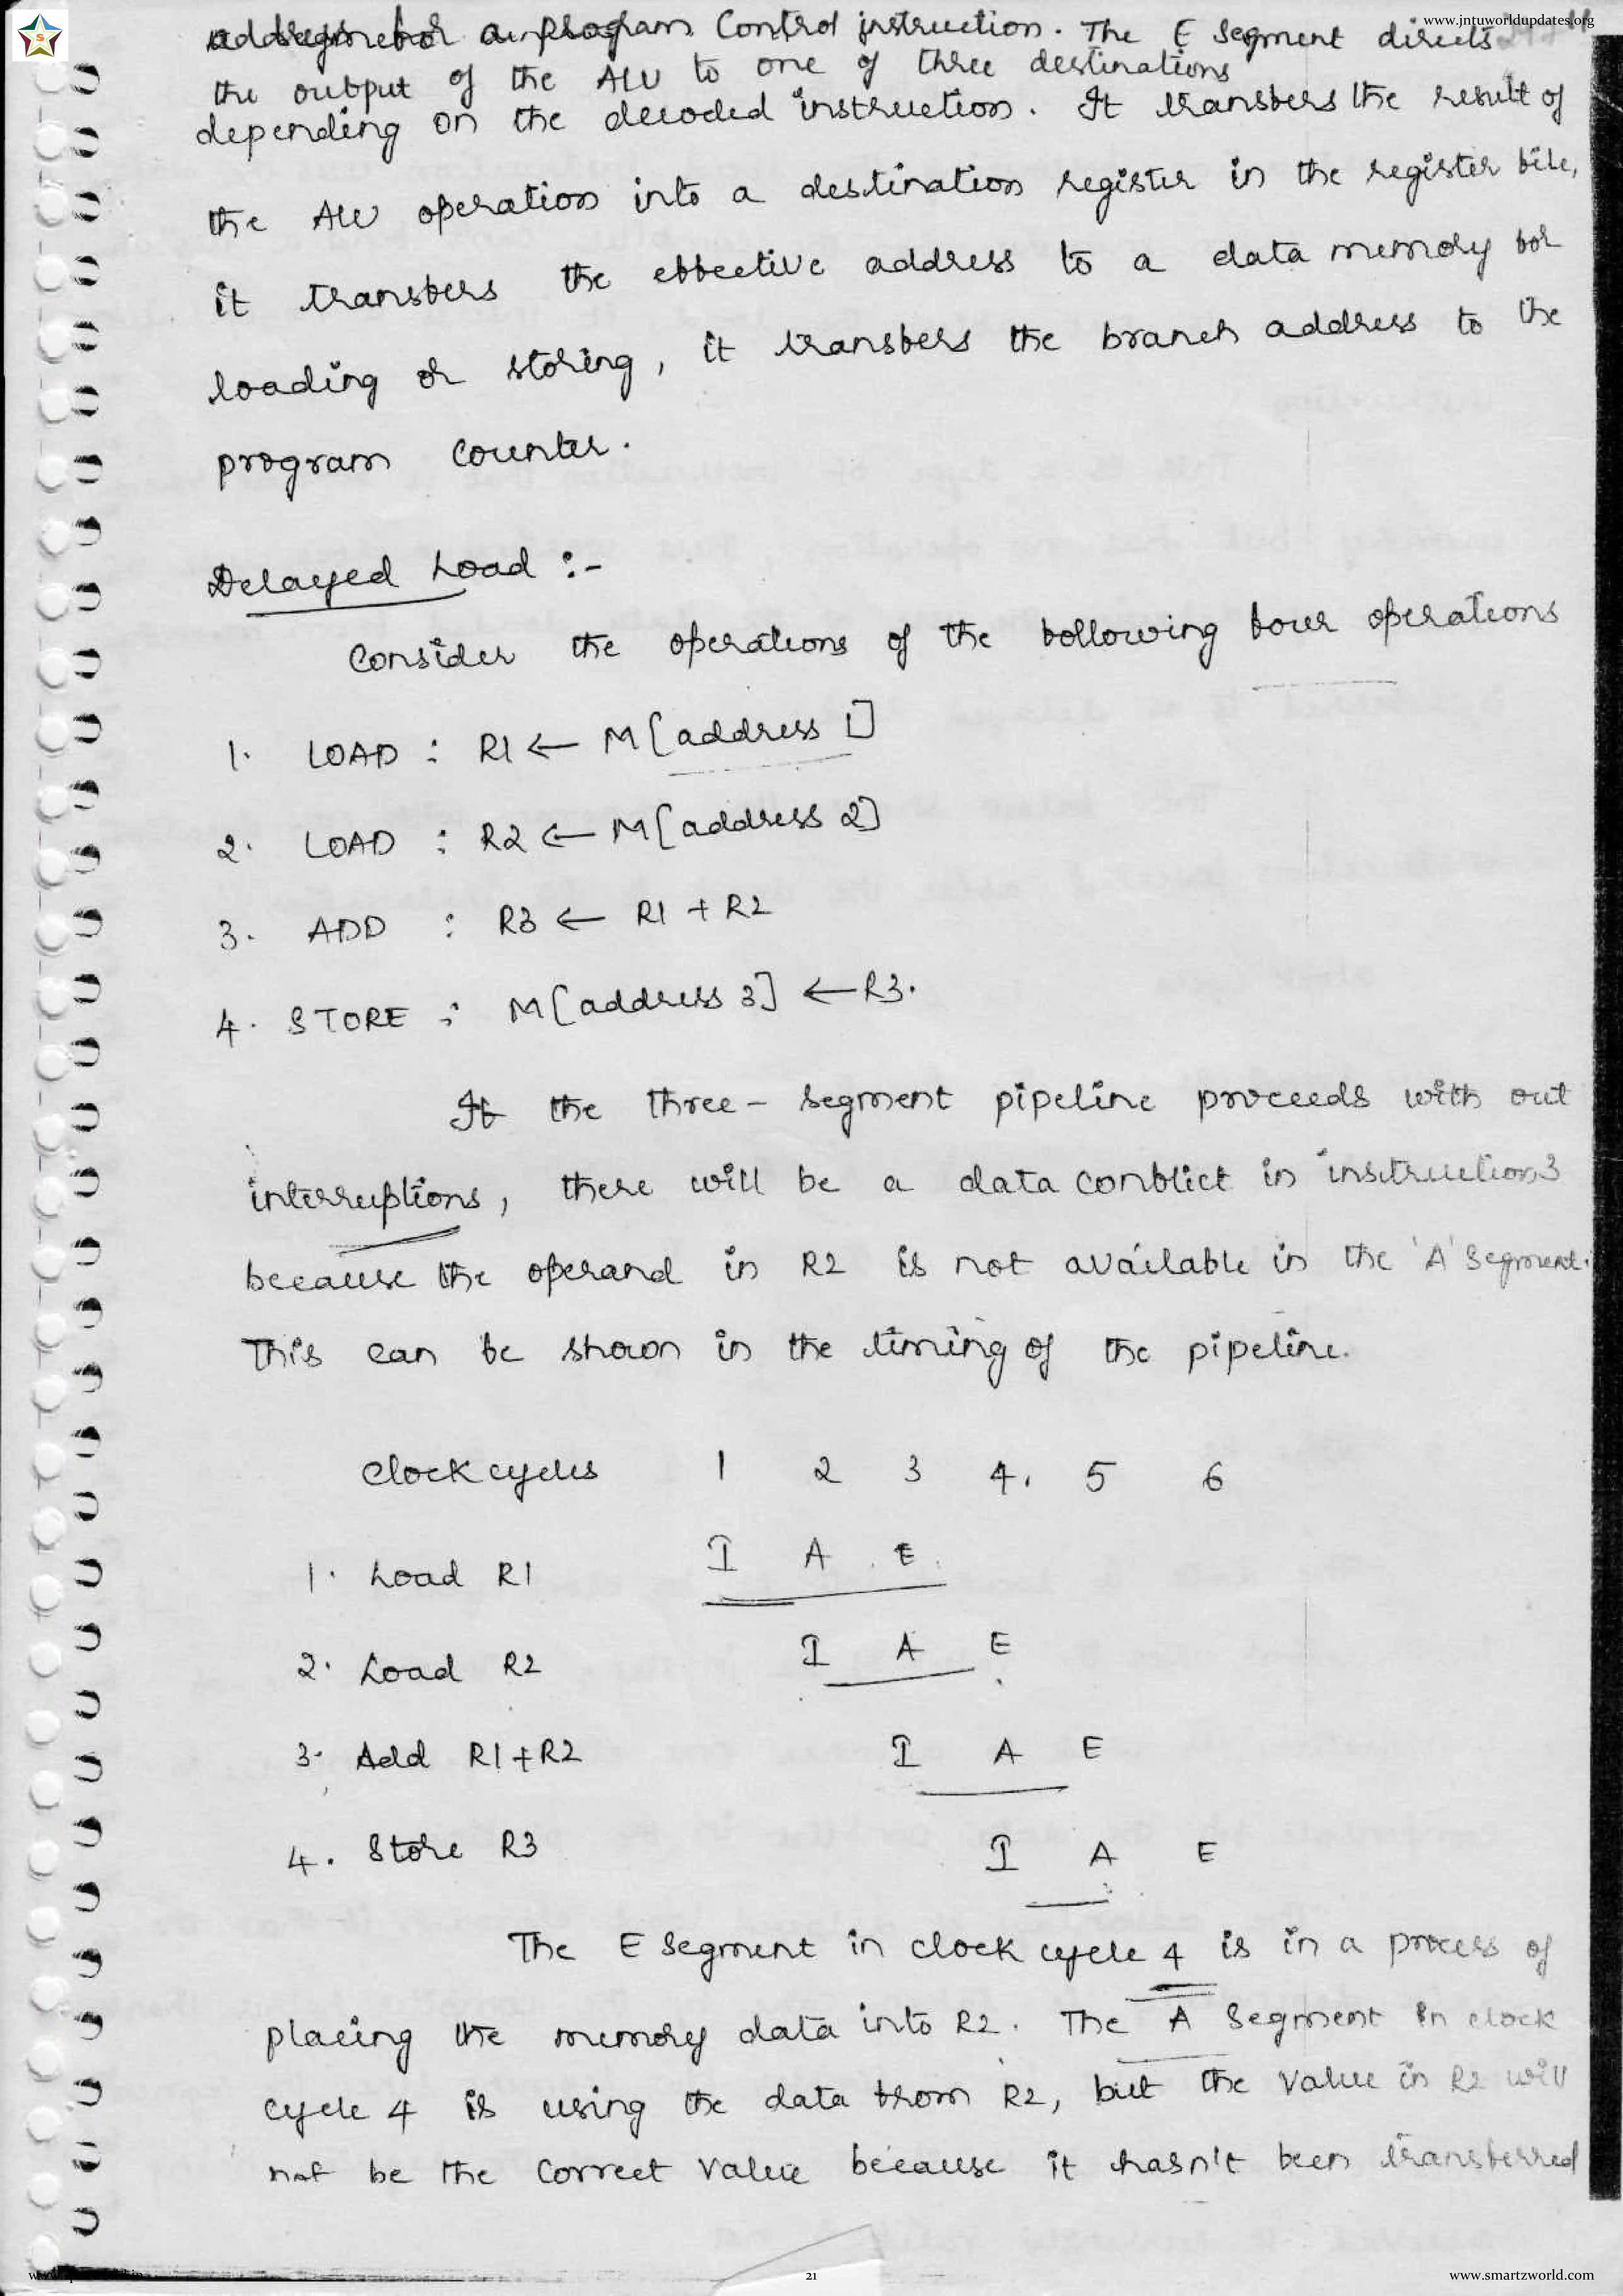 www.jntuworldupdates.org
address for a program Control instruction. The E segment directs
the output of the ALU to one of three destinations
depending on the decoded instruction. It transfers the result of
the ALU operation into a destination register in the register file,
it transfers the effective address to a data memory for
loading or storing, it transfers the branch address to the
program Counter.
Delayed Load :-
Consider the operations of the following four operations
1. LOAD : R1 ← M[address 1]
2. LOAD : R2 ← M[address 2]
3. ADD : R3 ← R1 + R2
4. STORE : M[address 3] ← R3.
If the three - segment pipeline proceeds with out
interruptions, there will be a data conflict in instruction 3
because the operand in R2 is not available in the 'A' Segment.
This can be shown in the timing of the pipeline.
Clock cycles 1 2 3 4. 5 6
1. Load R1 I A E
2. Load R2 I A E
3. Add R1+R2 I A E
4. Store R3 I A E
The E Segment in clock cycle 4 is in a process of
placing the memory data into R2. The A Segment in clock
cycle 4 is using the data from R2, but the value in R2 will
not be the correct value because it hasn't been transferred
21
www.smartzworld.com